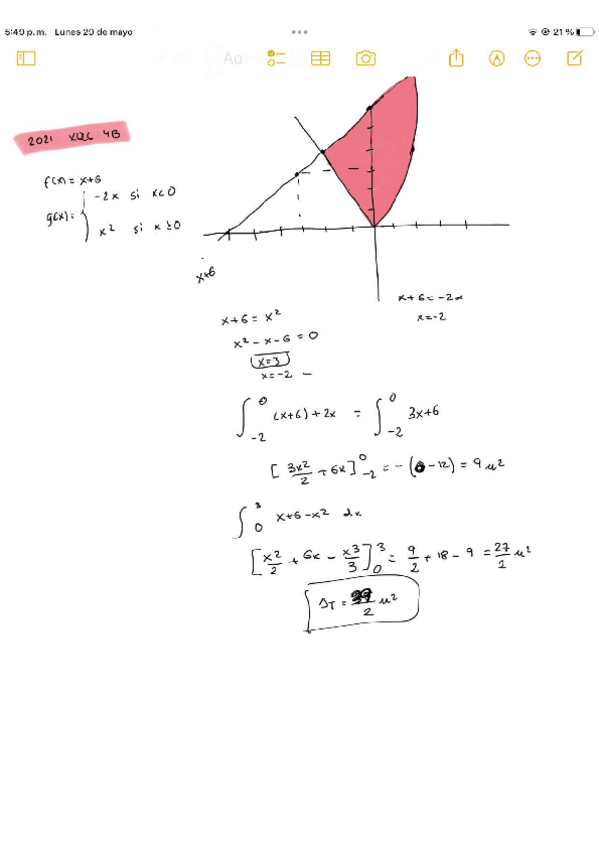 5:49 p.m. Lunes 20 de mayo
21 %
Aa
2021 XXX 4B
f(x) = x+6
g(x) = { -2x si x<0
x² si x≥0
x+6
x+6 = -2x
x=-2
x+6 = x²
x² - x - 6 = 0
x=3
x=-2 –
∫₋₂⁰ (x+6)+2x = ∫₋₂⁰ 3x+6
[3x²/2 + 6x]₋₂⁰ = -(6-12) = 9 u²
∫₀³ x+6-x² dx
[x²/2 + 6x - x³/3]₀³ = 9/2 + 18 - 9 = 27/2 u²
/2 u²